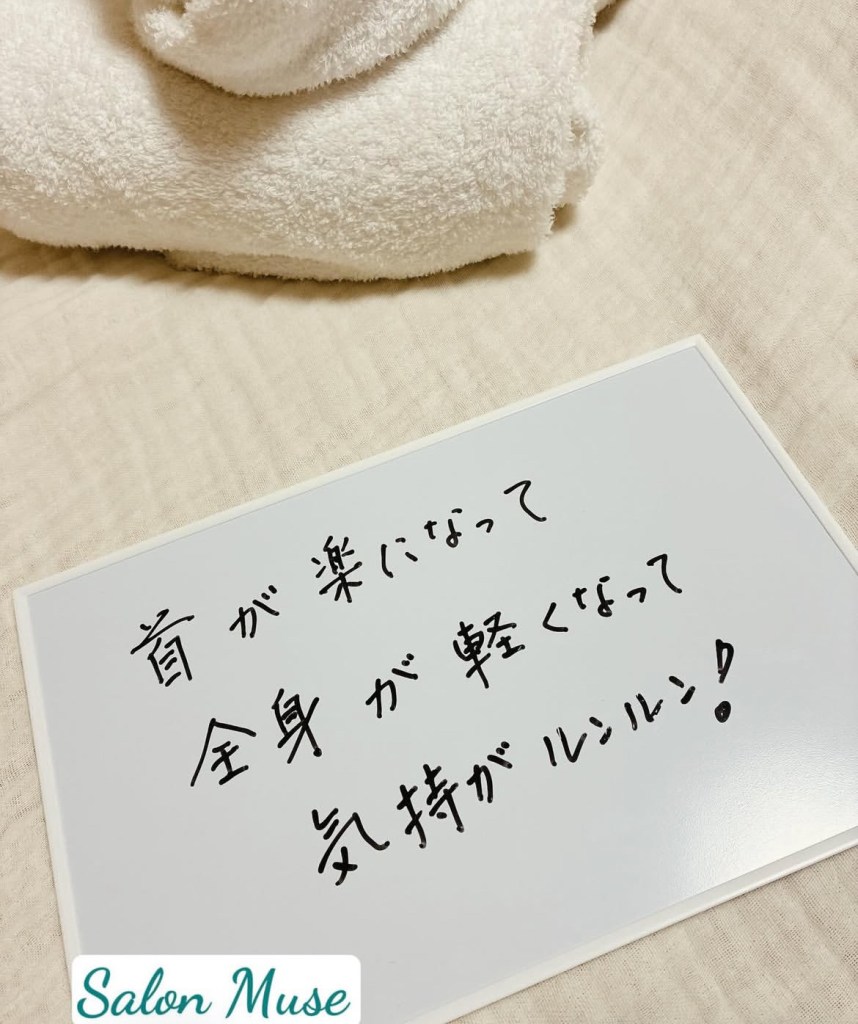 首が楽になって
全身が軽くなって
気持がルンルン!
Salon Muse